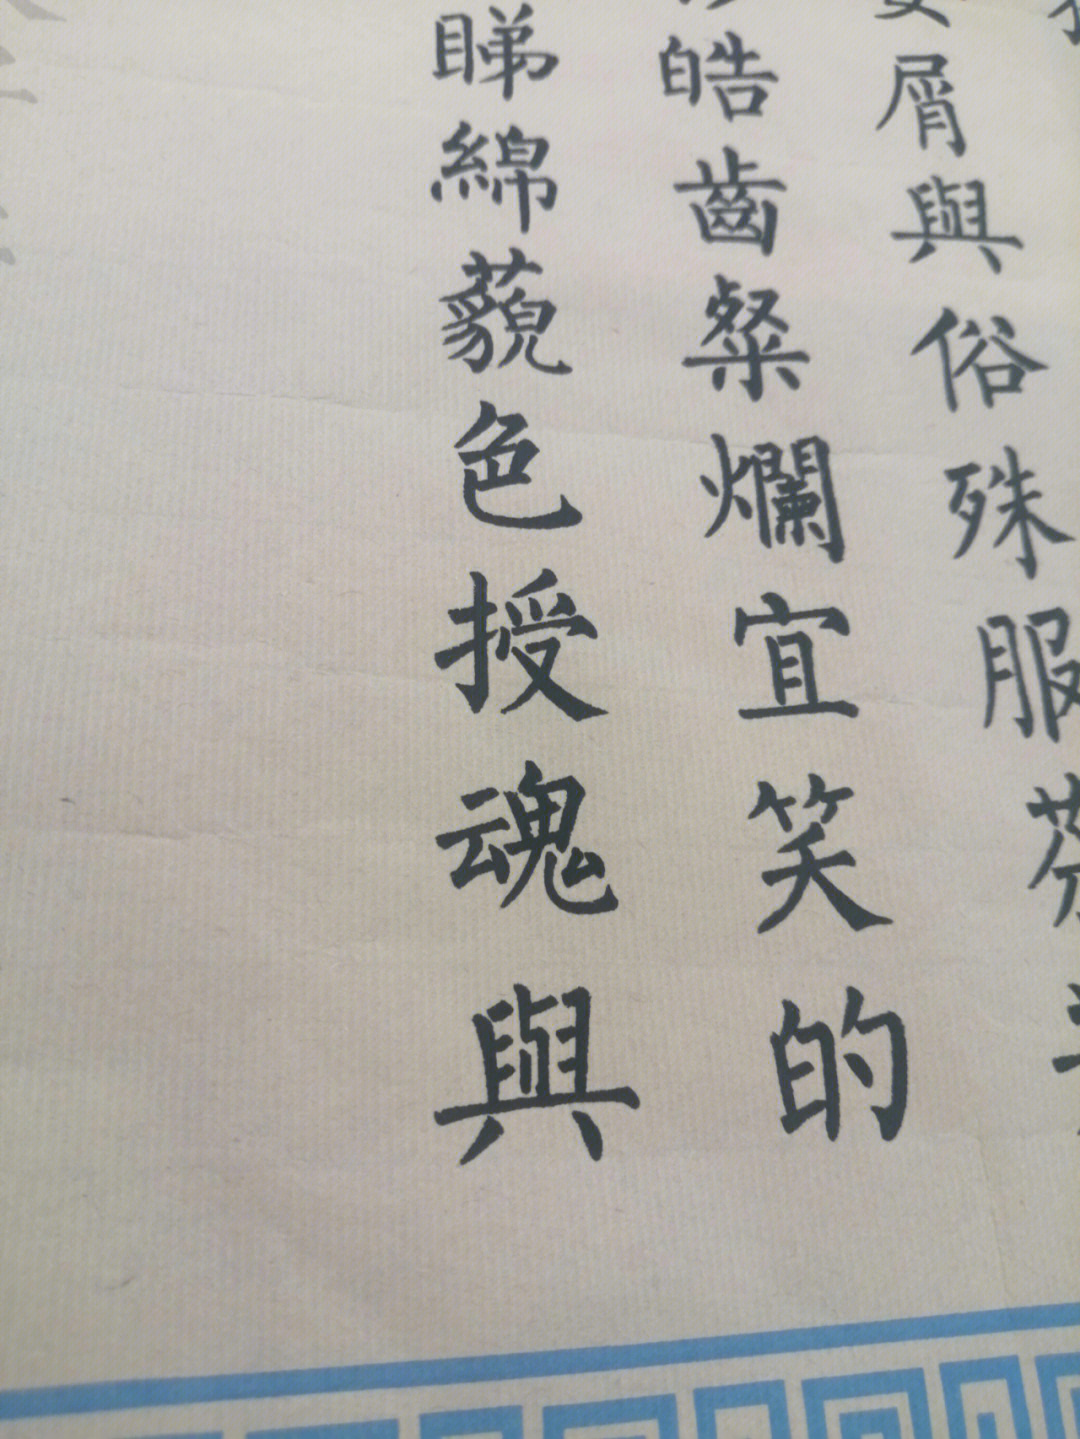 屑與俗殊服芬
皓齒粲爛宜笑的
睇綿藐色授魂與